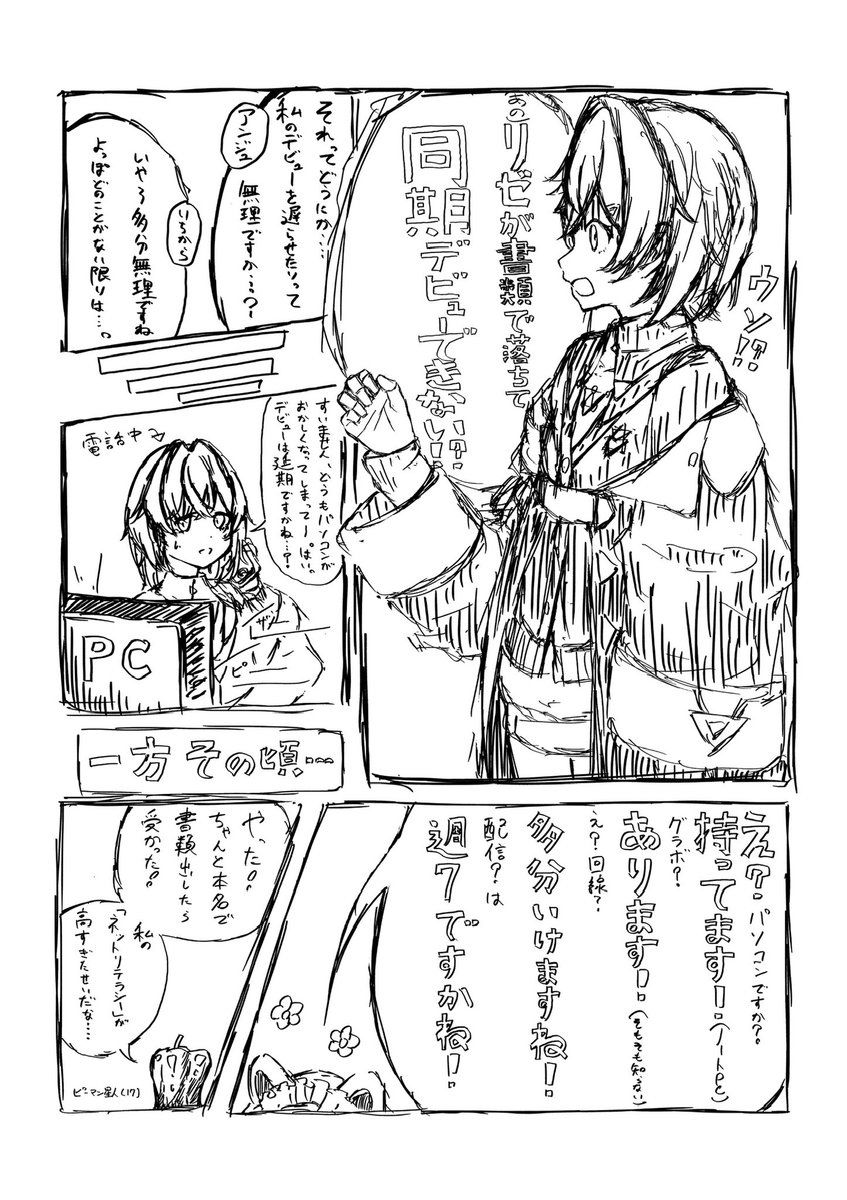 あのリゼが書類で落ちて
同期デビューできない!?
ウソ!?
それってどうにか…
私のデビューを遅らせたりって
無理ですか…?
アンジュ
いちから
いやぁ多分無理ですね
よっぽどのことがない限りは…。
すいません、どうもパソコンが
おかしくなってしまってー。はい。
デビューは延期ですかね…?
電話中
PC
ピー
一方その頃…
え?パソコンですか?
持ってます!(ノートPC)
グラボ?
あります!(そもそも知らない)
え?回線?
多分いけますね!
配信?は
週7ですかね!
やった。
ちゃんと本名で
書類出したら
受かった。
私の
「ネットリテラシー」が
高すぎたせいだな…
ピーマン星人(17)